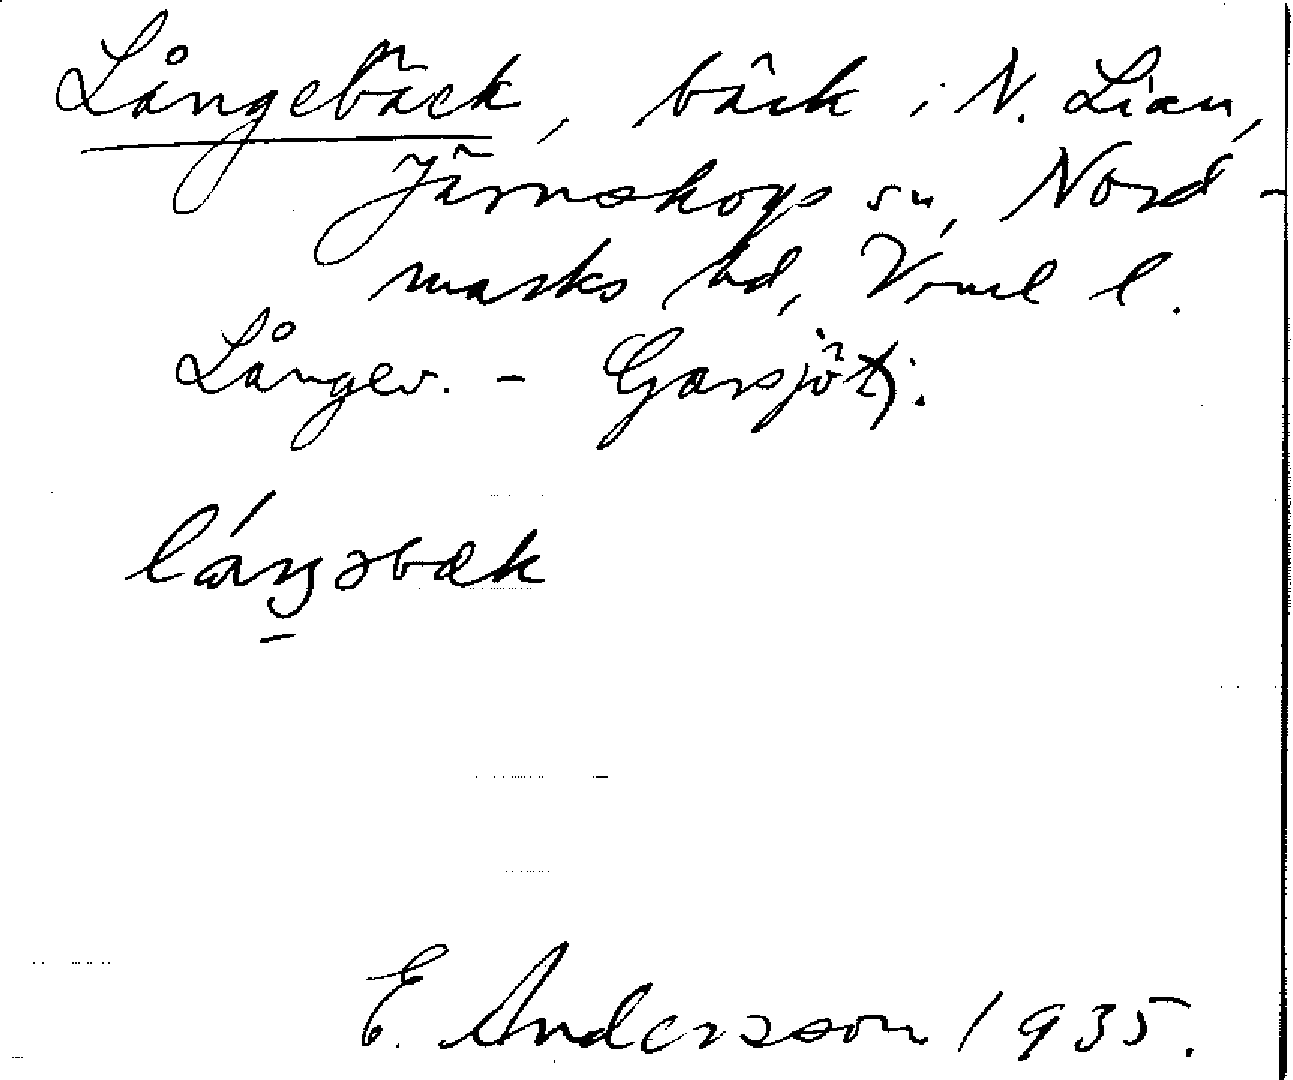 Långebäck, bäck i N. Lian,
Järnskogs sn, Nord-
marks hd, Vrml l.
Långev. - Garsjötj.
láŋəbæk
E. Andersson 1935.